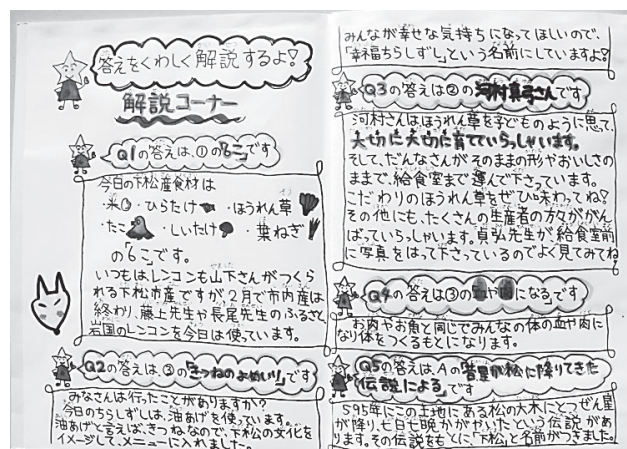 答えをくわしく解説するよ!
解説コーナー
Q1の答えは、①の「6こ」です
今日の下松産食材は
・米 ・ひらたけ ・ほうれん草
・たこ ・しいたけ ・葉ねぎ
の6こです。
いつもはレンコンも山下さんがつくら
れる下松市産ですが、2月で市内産は
終わり、藤上先生や長尾先生のふるさと
岩国のレンコンを今日は使っています。
Q2の答えは③の「きつねのよめいり」です
みなさんは行ったことがありますか?
今日のちらしずしは、油あげを使っています。
油あげと言えば、きつねなので、下松の文化を
イメージして、メニューに入れました。
みんなが幸せな気持ちになってほしいので、
「幸福ちらしずし」という名前にしていますよ!
Q3の答えは②の河村真弓さんです
河村さんはほうれん草を子どものように思って、
大切に大切に育てていらっしゃいます。
そして、だんなさんがそのままの形やおいしさの
ままで、給食室まで運んで下さっています。
こだわりのほうれん草をぜひ味わってね!
その他にも、たくさんの生産者の方々ががん
ばっていらっしゃいます。貞弘先生が、給食室前
に写真をはって下さっているのでよく見てみてね
Q4の答えは③の「血や肉になる」です
お肉やお魚と同じでみんなの体の血や肉に
なり体をつくるもとになります。
Q5の答えは、Aの「昔星が松に降りてきた
伝説による」です
595年にこの土地にある松の大木にとつぜん星
が降り、七日七晩かがやいたという伝説があ
ります。その伝説をもとに「下松」と名前がつきました。